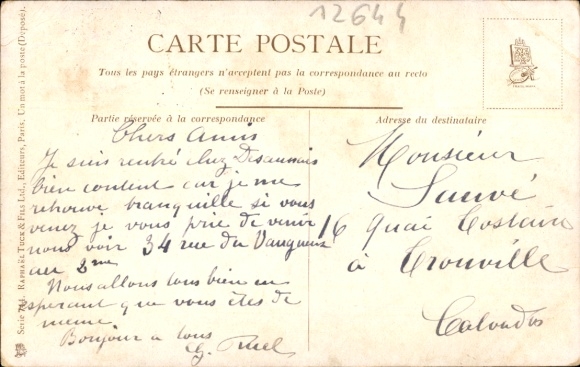 12644
CARTE POSTALE
Tous les pays étrangers n'acceptent pas la correspondance au recto
(Se renseigner à la Poste)
Partie réservée à la correspondance
Chers Amis
Je suis rentré chez
bien content car je me
retrouve tranquille si vous
venez je vous prie de venir
nous voir 34 rue du Vaugueux
au 2me
Nous allons tous bien en
esperant que vous êtes de
meme
Bonjour a tous
G. Ruel
Adresse du destinataire
Monsieur
Sauvé
16 Quai
à Trouville
Calvados
Serie 741. RAPHAEL TUCK & FILS Ltd., Editeurs, Paris, Un mot à la poste (Déposé).